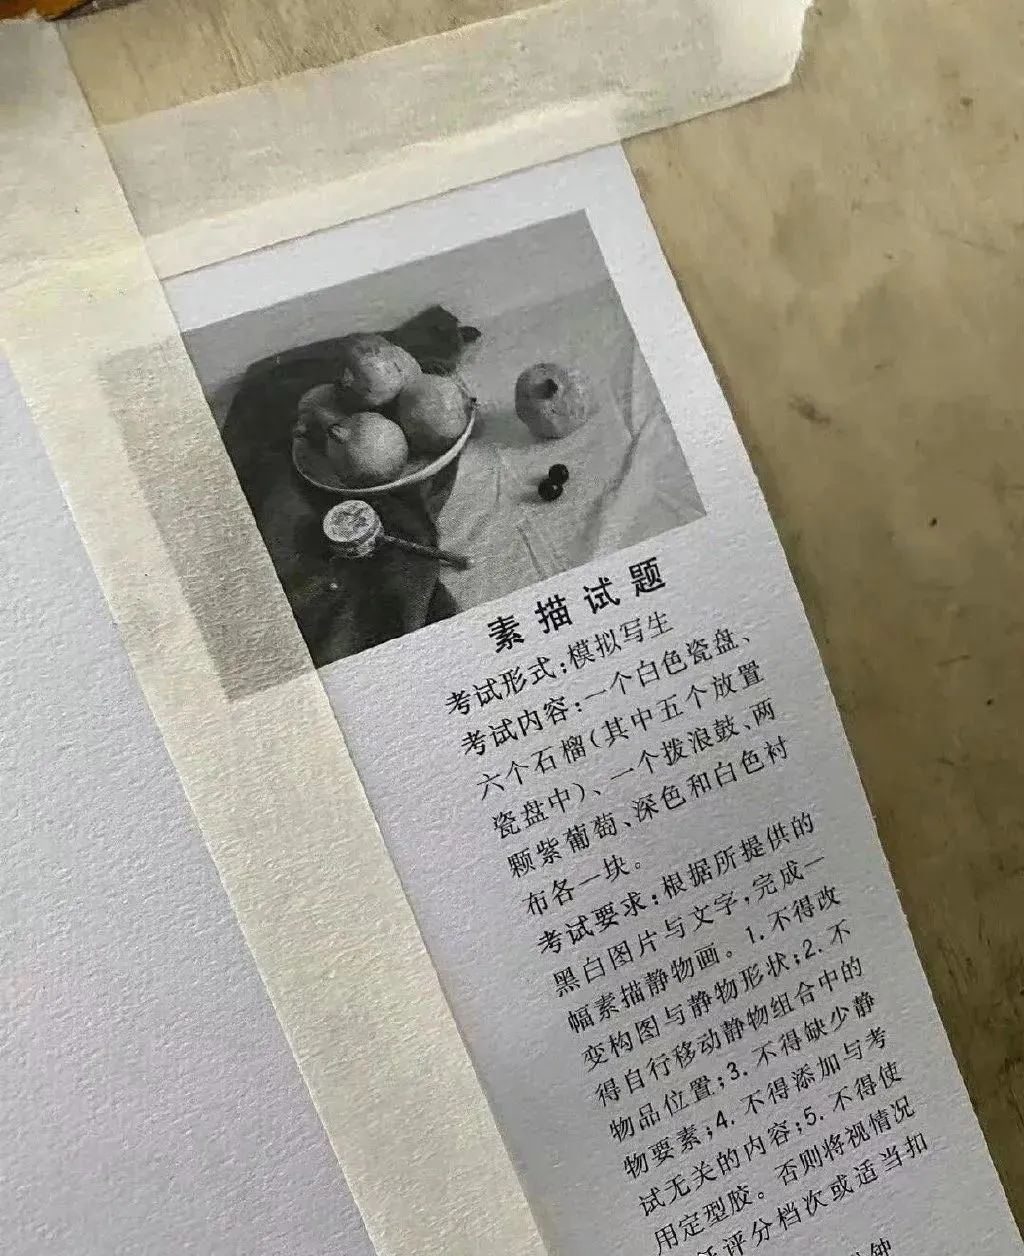 素描试题
考试形式:模拟写生
考试内容:一个白色瓷盘、
六个石榴(其中五个放置
瓷盘中)、一个拨浪鼓、两
颗紫葡萄、深色和白色衬
布各一块。
考试要求:根据所提供的
黑白图片与文字,完成一
幅素描静物画。1.不得改
变构图与静物形状;2.不
得自行移动静物组合中的
物品位置;3.不得缺少静
物要素;4.不得添加与考
试无关的内容;5.不得使
用定型胶。否则将视情况
评分档次或适当扣
钟